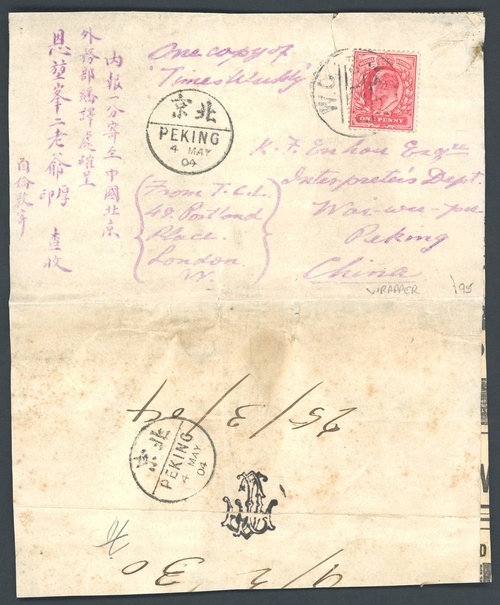 內報一分寄至中國北京
外務部繙譯處確呈
恩
二老爺
印
厚
查收
自倫敦寄
One copy of
"Times Weekly"
北京
PEKING
4 MAY
04
W.C
ONE PENNY
K. F. Enhou Esqre
Interpreter's Dept.
Wai-wu-pu
Peking
China
From T. C. L.
49. Portland
Place.
London
W.
WRAPPER
195
25/3/04
北京
PEKING
4 MAY
04
30